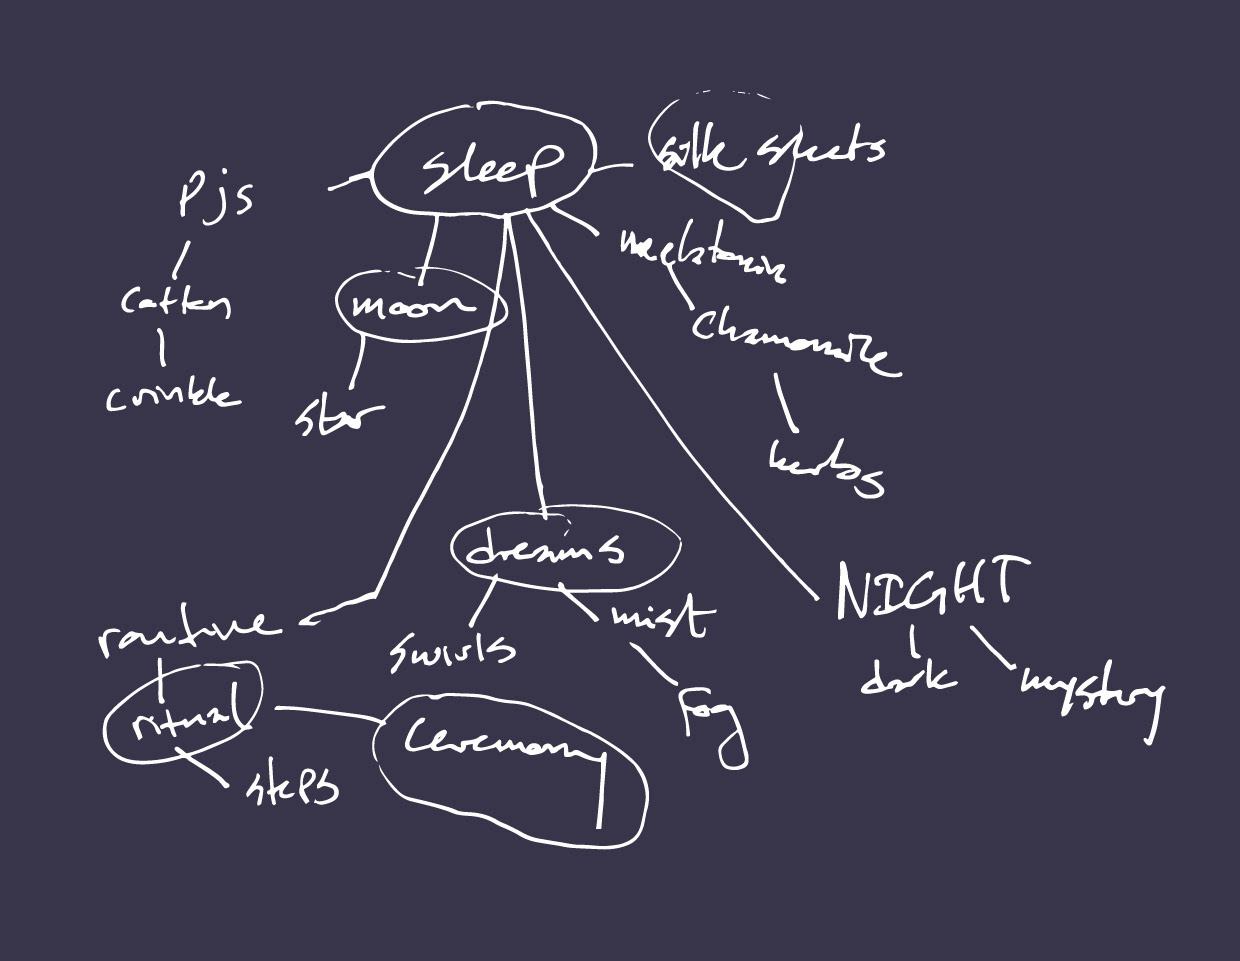 sleep
silk sheets
Pjs
melatonin
cotton
moon
chamomile
crinkle
star
herbs
dreams
NIGHT
routine
mist
swirls
dark
mystery
ritual
fog
ceremony
steps